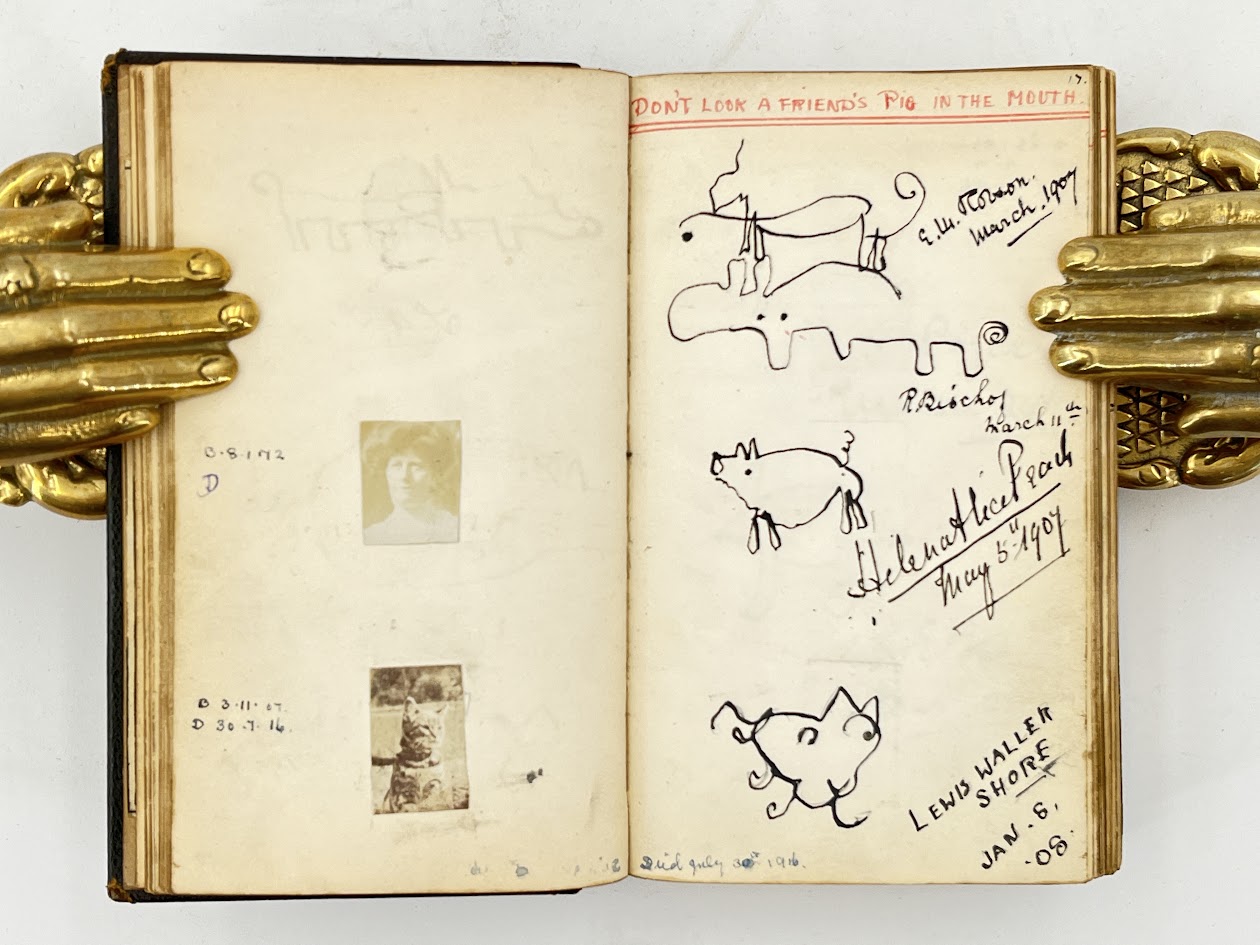 B. 8.1.72
D
B 3.11.07.
D 30.7.16.
17.
DON'T LOOK A FRIEND'S PIG IN THE MOUTH.
E. M. Robson.
March. 1907
R. Bischof
March 11th
Helena Alice Peach
May 5th 1907
LEWIS WALLER
SHORE
JAN. 8.
.08.
Died July 30th 1916.